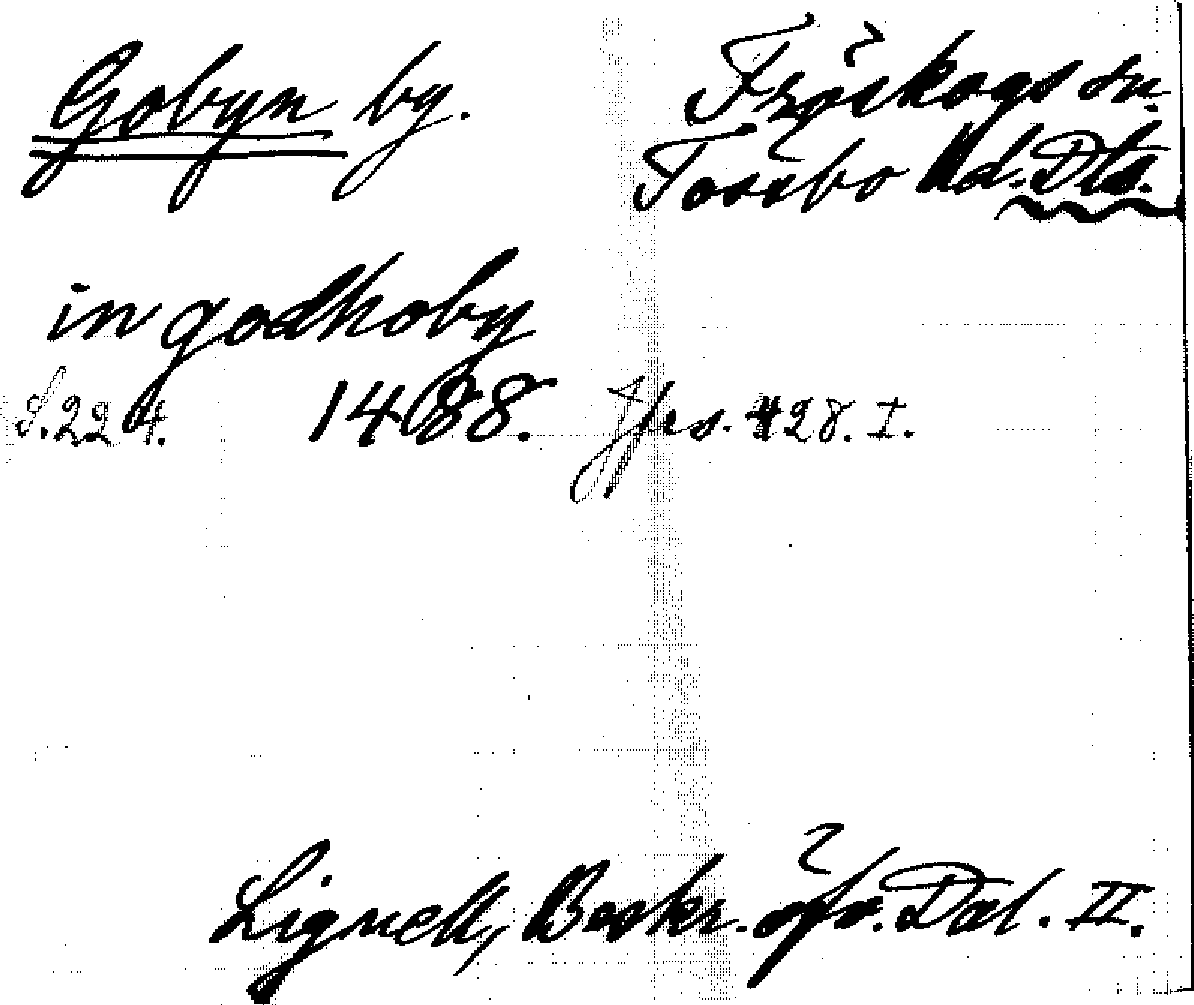 Gobyn by. Fröskogs sn.
Tössbo hd. Dls.
in godhoby
S. 224. 1488. Jfes. 428. I.
Lignell, Beskr. öfv. Dal. II.